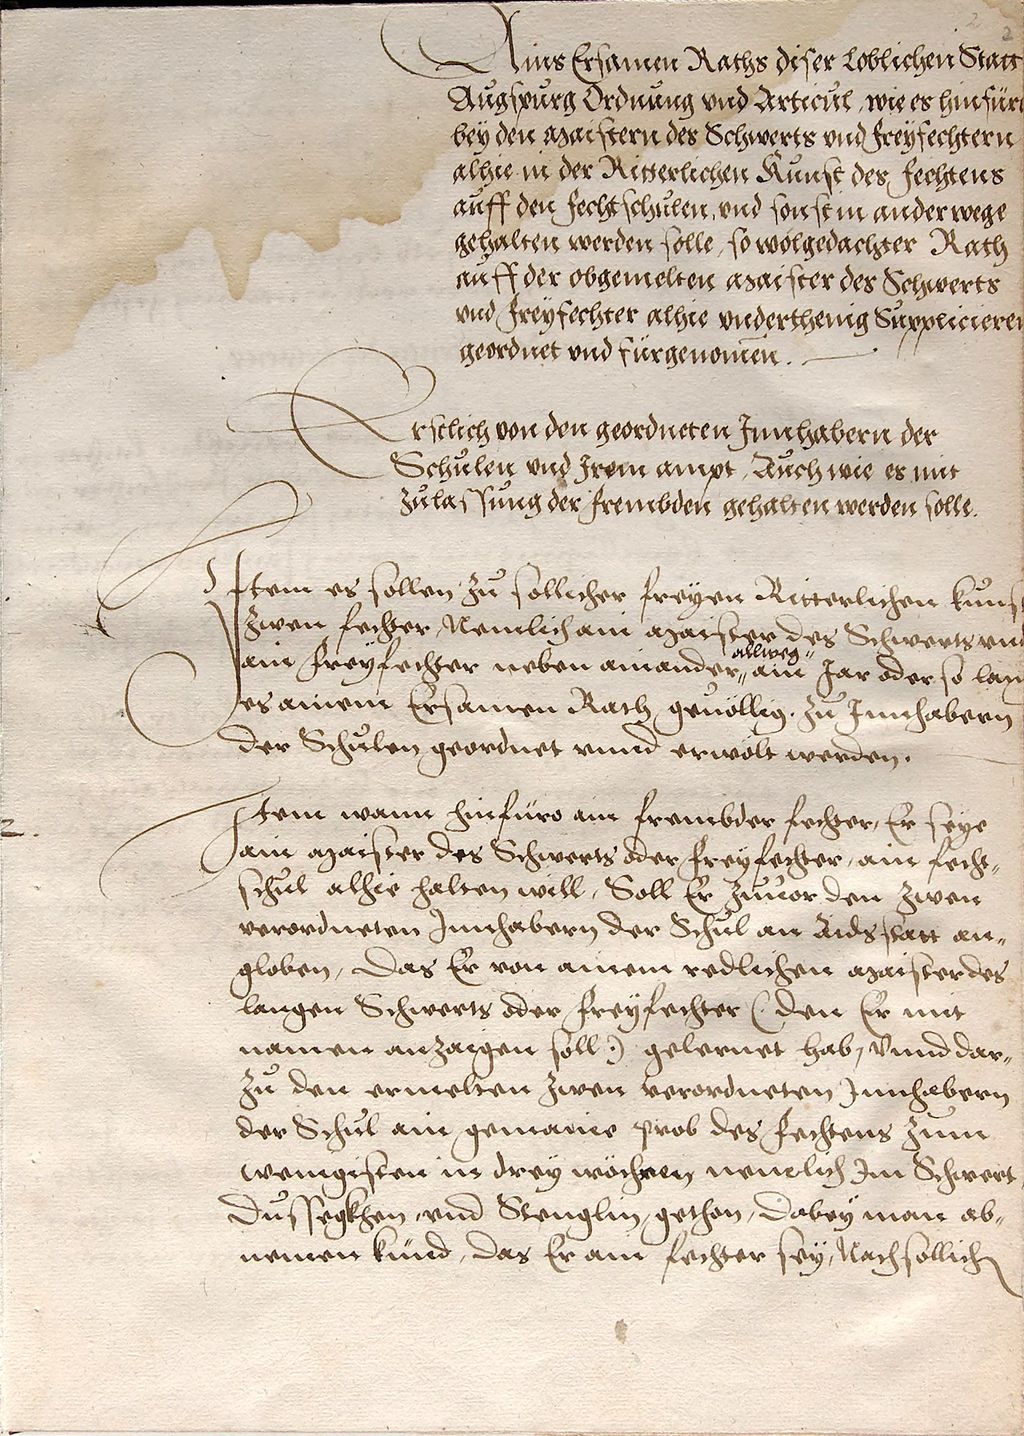 2
2
Ains Ersamen Raths diser loblichen Statt
Augspurg Ordnung vnd Articul, wie es hinfüro
bey den Maistern des Schwerts vnd freyfechtern
alhie in der Ritterlichen Kunst des fechtens
auff den fechtschulen, vnd sonst in ander wege
gehalten werden solle, so wolgedachter Rath
auff der obgemelten Maister des Schwerts
vnd freyfechter alhie vnderthenig Supplicieren
geordnet vnd fürgenomen.
Erstlich von den geordneten Innhabern der
Schulen vnd Irem ampt, Auch wie es mit
zulassung der frembden gehalten werden solle.
Item es sollen zu sollicher freyen Ritterlichen kunst
zwen fechter, Nemlich ain Maister des Schwerts vnd
allweg
ain freyfechter neben ainander, ain Jar oder so lang
es ainem Ersamen Rath geuöllig. zu Innhabern
der Schulen geordnet vnnd erwölt werden.
2.
Item wann hinfüro ain frembder fechter, Er seye
ain Maister des Schwerts oder freyfechter, ain fecht-
schul alhie halten will, Soll Er zuuor den zwen
verordneten Innhabern der Schul an Aids statt an-
globen, Das Er von ainem redlichen Maister des
langen Schwerts oder freyfechter (: den Er mit
namen anzaigen soll :) gelernet hab, Vnnd dar-
zu den ermelten zwen verordneten Innhabern
der Schul ain gemaine prob des fechtens zum
wenigisten in drey wöhren, nemlich Im Schwert,
Dussegkhen, vnd Stenglin, gethon, Dabey man ab-
nemen künd, das Er ain fechter sey, Nach sollich